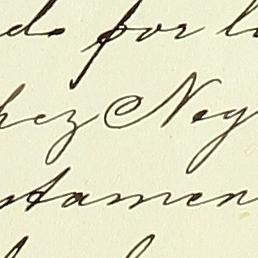 do por l
hez Neg
stamen